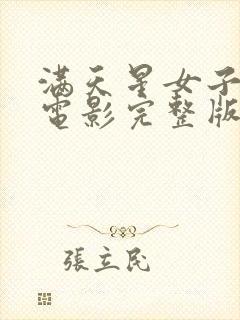 滿天星女子
電影完整版
張立民